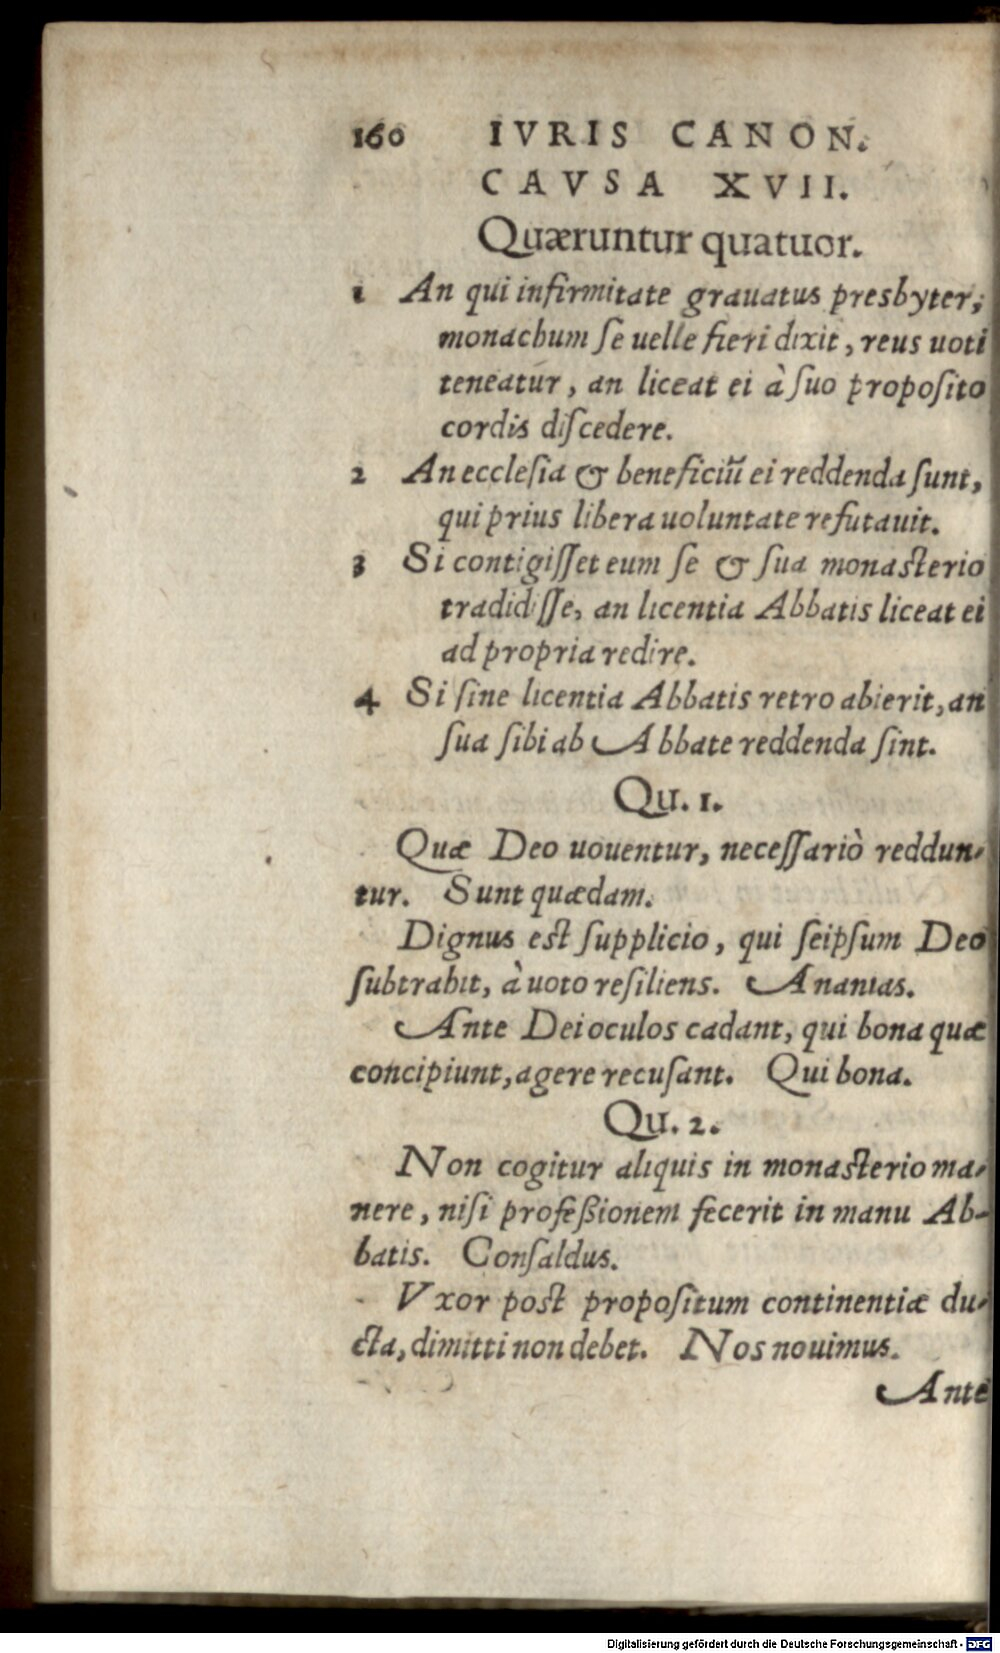 160 IVRIS CANON.
CAVSA XVII.
Quæruntur quatuor.
1 An qui infirmitate grauatus presbyter,
monachum ſe uelle fieri dixit, reus uoti
teneatur, an liceat ei à ſuo propoſito
cordis diſcedere.
2 An eccleſia & beneficiũ ei reddenda ſunt,
qui prius libera uoluntate refutauit.
3 Si contigiſſet eum ſe & ſua monaſterio
tradidiſſe, an licentia Abbatis liceat ei
ad propria redire.
4 Si ſine licentia Abbatis retro abierit, an
ſua ſibi ab Abbate reddenda ſint.
Qu. 1.
Quæ Deo uouentur, neceſſariò reddun-
tur. Sunt quædam.
Dignus eſt ſupplicio, qui ſeipſum Deo
ſubtrahit, à uoto reſiliens. Ananias.
Ante Dei oculos cadant, qui bona quæ
concipiunt, agere recuſant. Qui bona.
Qu. 2.
Non cogitur aliquis in monaſterio ma-
nere, niſi profeßionem fecerit in manu Ab-
batis. Conſaldus.
Vxor poſt propoſitum continentiæ du-
cta, dimitti non debet. Nos nouimus.
Ante
Digitalisierung gefördert durch die Deutsche Forschungsgemeinschaft - DFG